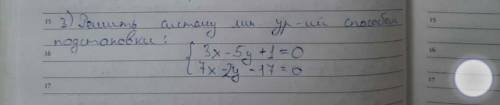 15 3) Решить систему лин ур-ий способом 15
подстановки:
16 { 3x - 5y + 1 = 0 16
{ 7x - 2y - 17 = 0
17 17